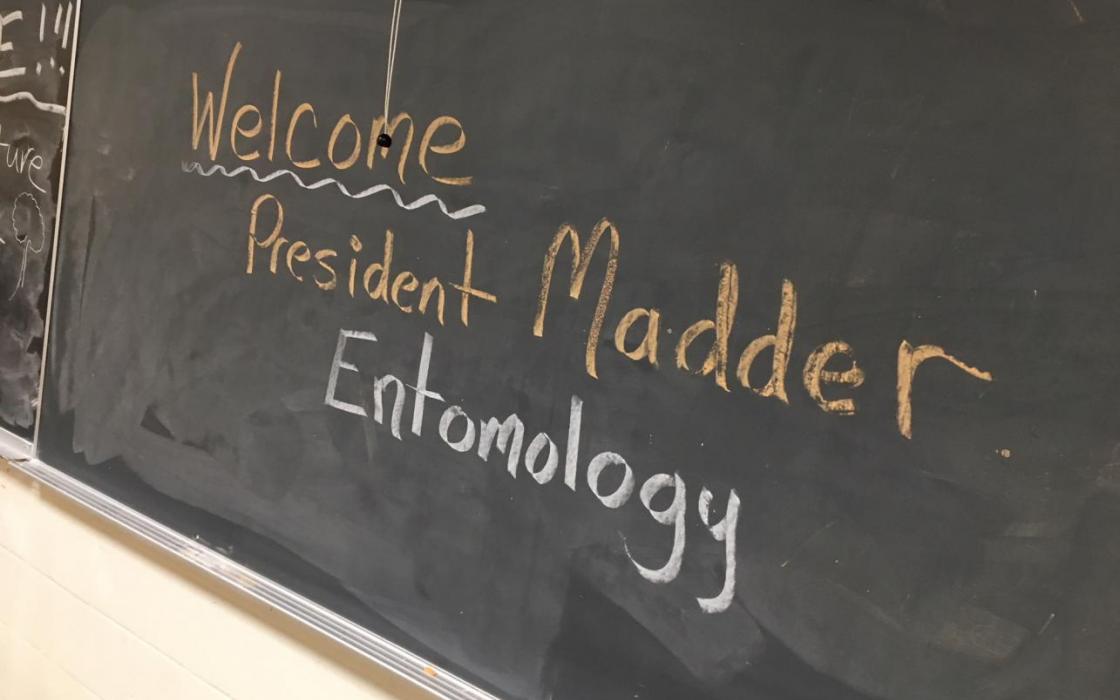 Welcome
President Madder
Entomology
E!!!
ture